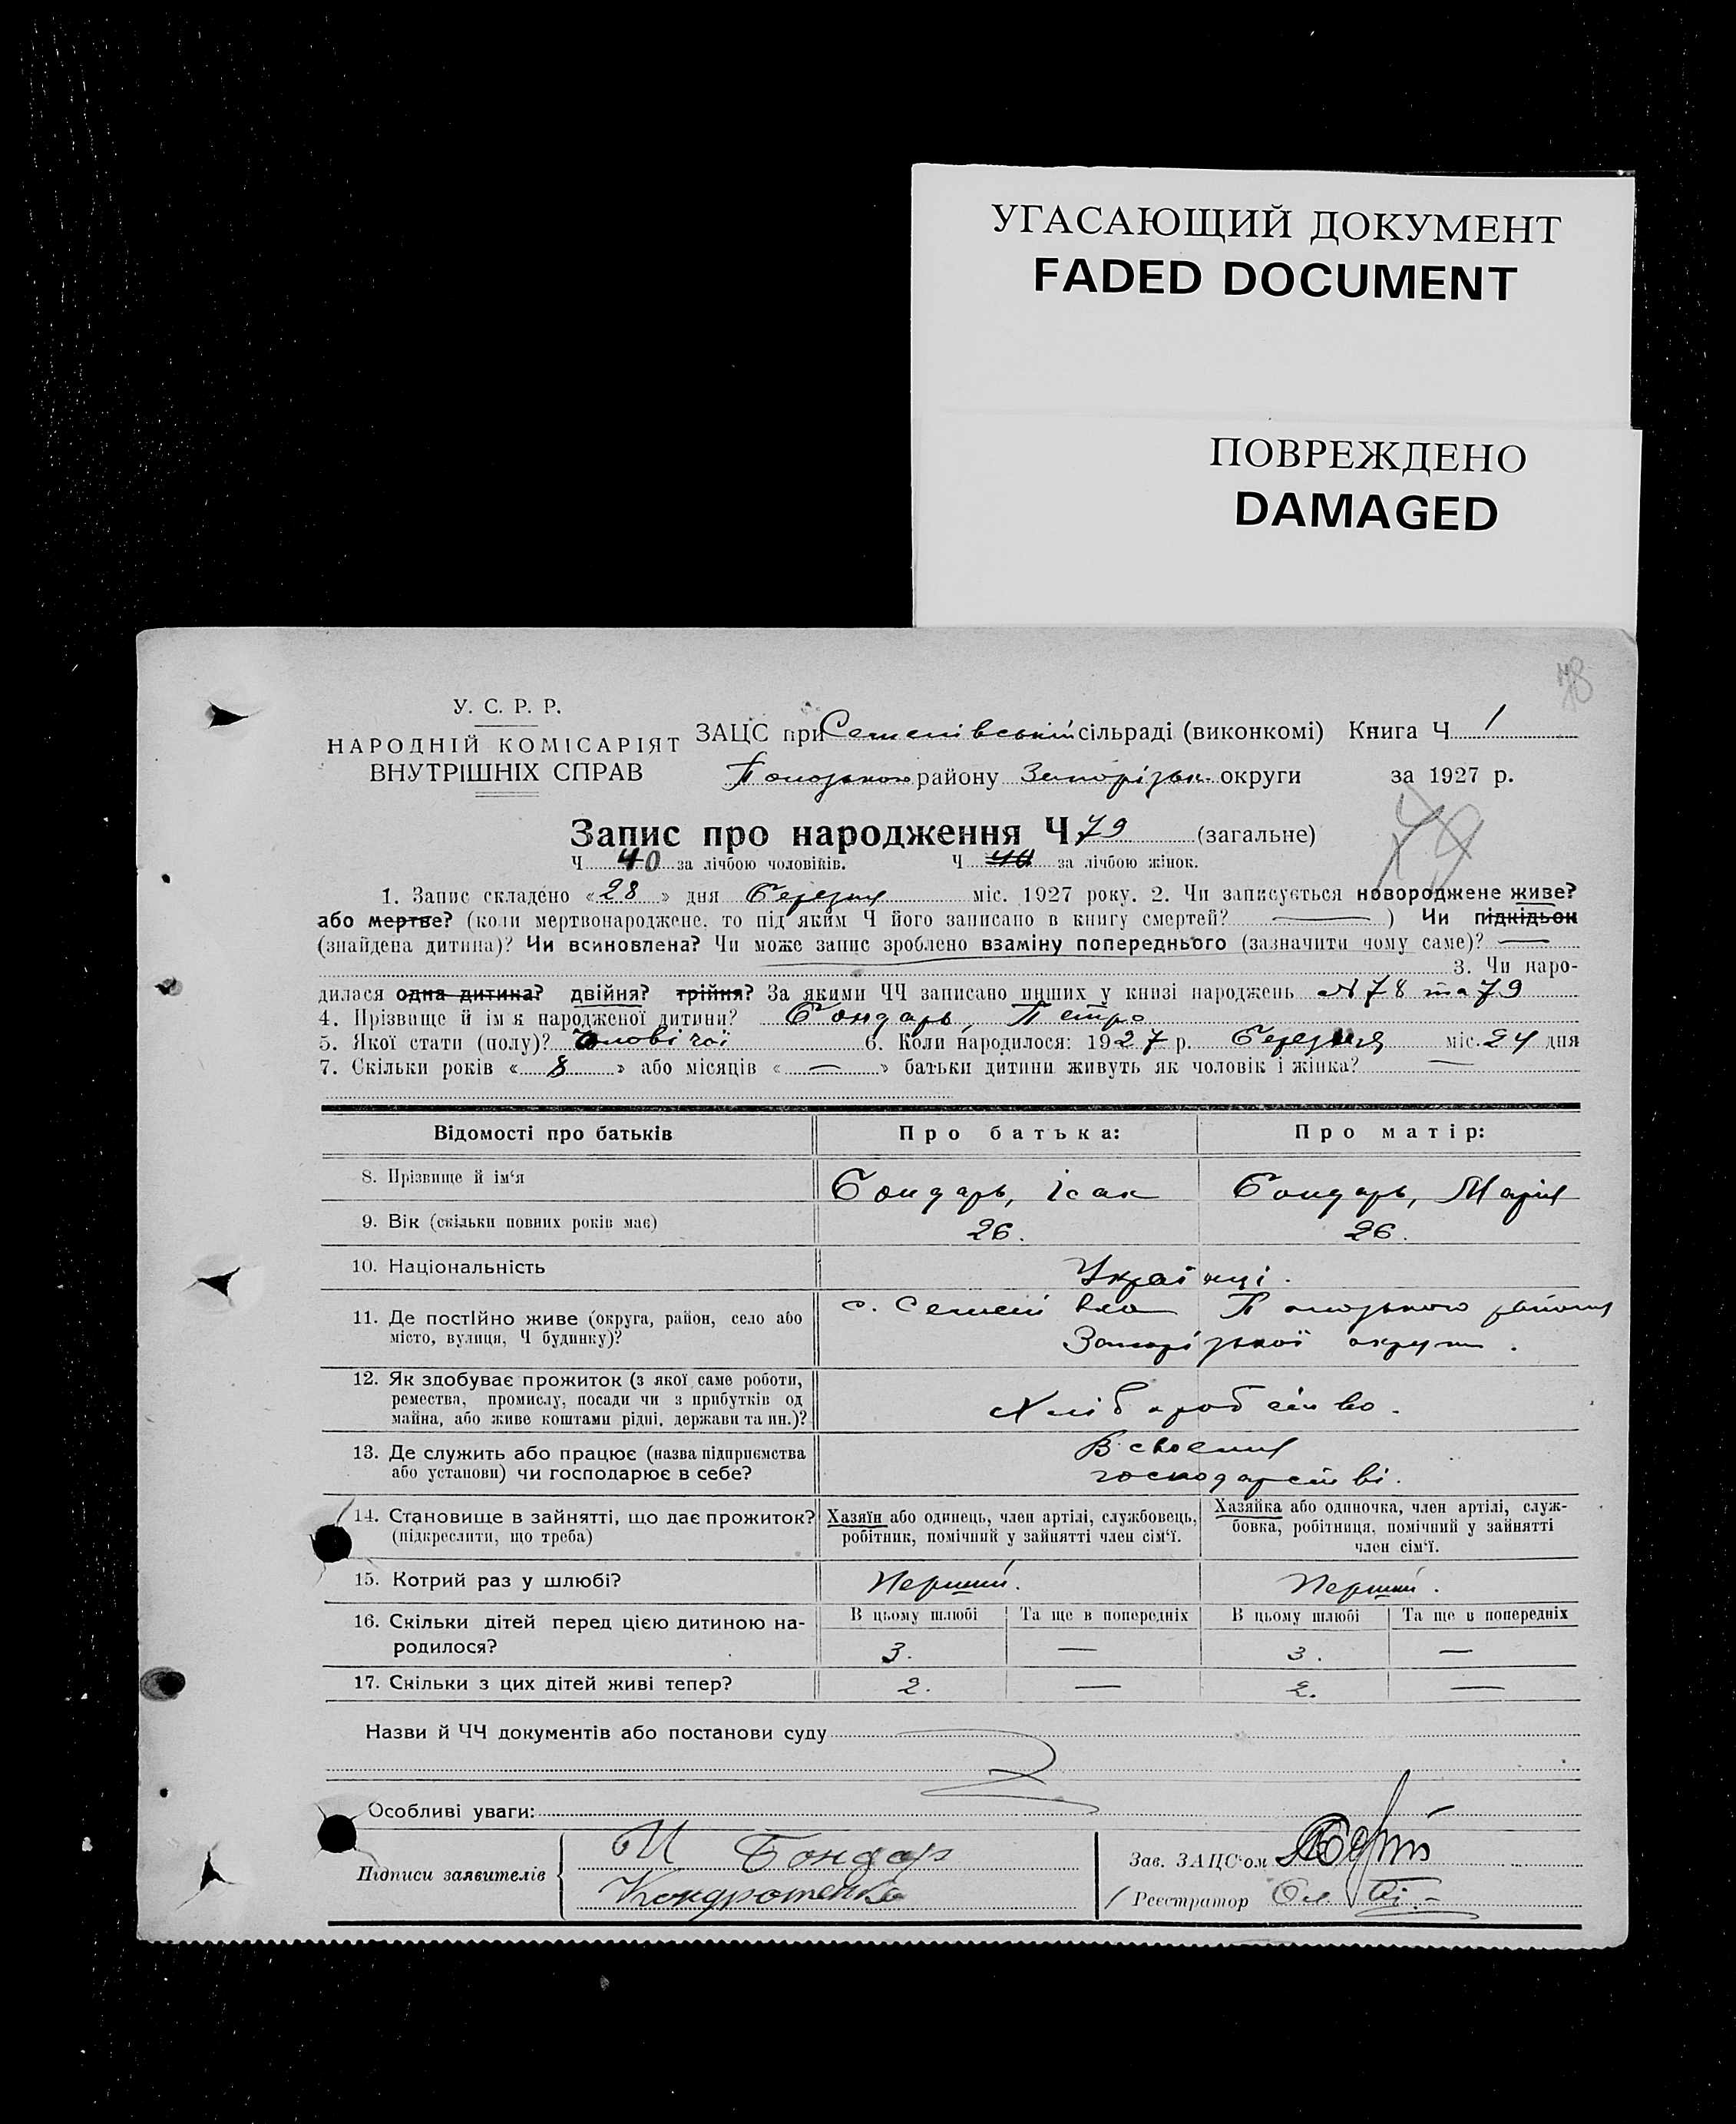 УГАСАЮЩИЙ ДОКУМЕНТ
FADED DOCUMENT
ПОВРЕЖДЕНО
DAMAGED
78
У. С. Р. Р.
НАРОДНІЙ КОМІСАРІЯТ
ВНУТРІШНІХ СПРАВ
ЗАЦС при Семенівській сільраді (виконкомі) Книга Ч 1
Пологського району Запорізьк. округи за 1927 р.
Запис про народження Ч 79 (загальне)
Ч 40 за лічбою чоловіків. Ч 40 за лічбою жінок.
78
1. Запис складено «28» дня Березня міс. 1927 року. 2. Чи записується новороджене живе?
або мертве? (коли мертвонароджене, то під яким Ч його записано в книгу смертей? —) Чи підкідьок
(знайдена дитина)? Чи всиновлена? Чи може запис зроблено взаміну попереднього (зазначити чому саме)? —
3. Чи наро-
дилася одна дитина? двійня? трійня? За якими ЧЧ записано инших у книзі народжень №78 та 79
4. Прізвище й ім'я народженої дитини? Бондарь, Петро
5. Якої стати (полу)? Чоловічої 6. Коли народилося: 1927 р. Березня міс. 24 дня
7. Скільки років «8» або місяців «—» батьки дитини живуть як чоловік і жінка? —
Відомості про батьків Про батька: Про матір:
8. Прізвище й ім'я Бондарь, Ісак Бондарь, Марія
9. Вік (скільки повних років має) 26. 26.
10. Національність Українці.
11. Де постійно живе (округа, район, село або місто, вулиця, Ч будинку)? с. Семенівка Пологського району
Запорізької округи.
12. Як здобуває прожиток (з якої саме роботи,
ремества, промислу, посади чи з прибутків од
майна, або живе коштами рідні, держави та ин.)? Хліборобство.
13. Де служить або працює (назва підприємства
або установи) чи господарює в себе? В своєму
господарстві.
14. Становище в зайнятті, що дає прожиток?
(підкреслити, що треба)
Хазяїн або одинець, член артілі, службовець,
робітник, помічний у зайнятті член сім'ї.
Хазяйка або одиночка, член артілі, служ-
бовка, робітниця, помічний у зайнятті
член сім'ї.
15. Котрий раз у шлюбі? Перший. Перший.
16. Скільки дітей перед цією дитиною на-
родилося?
В цьому шлюбі Та ще в попередніх В цьому шлюбі Та ще в попередніх
3. — 3. —
17. Скільки з цих дітей живі тепер? 2. — 2. —
Назви й ЧЧ документів або постанови суду
Особливі уваги:
Підписи заявителів И Бондар
Кондратенко
Зав. ЗАЦС'ом
Реєстратор